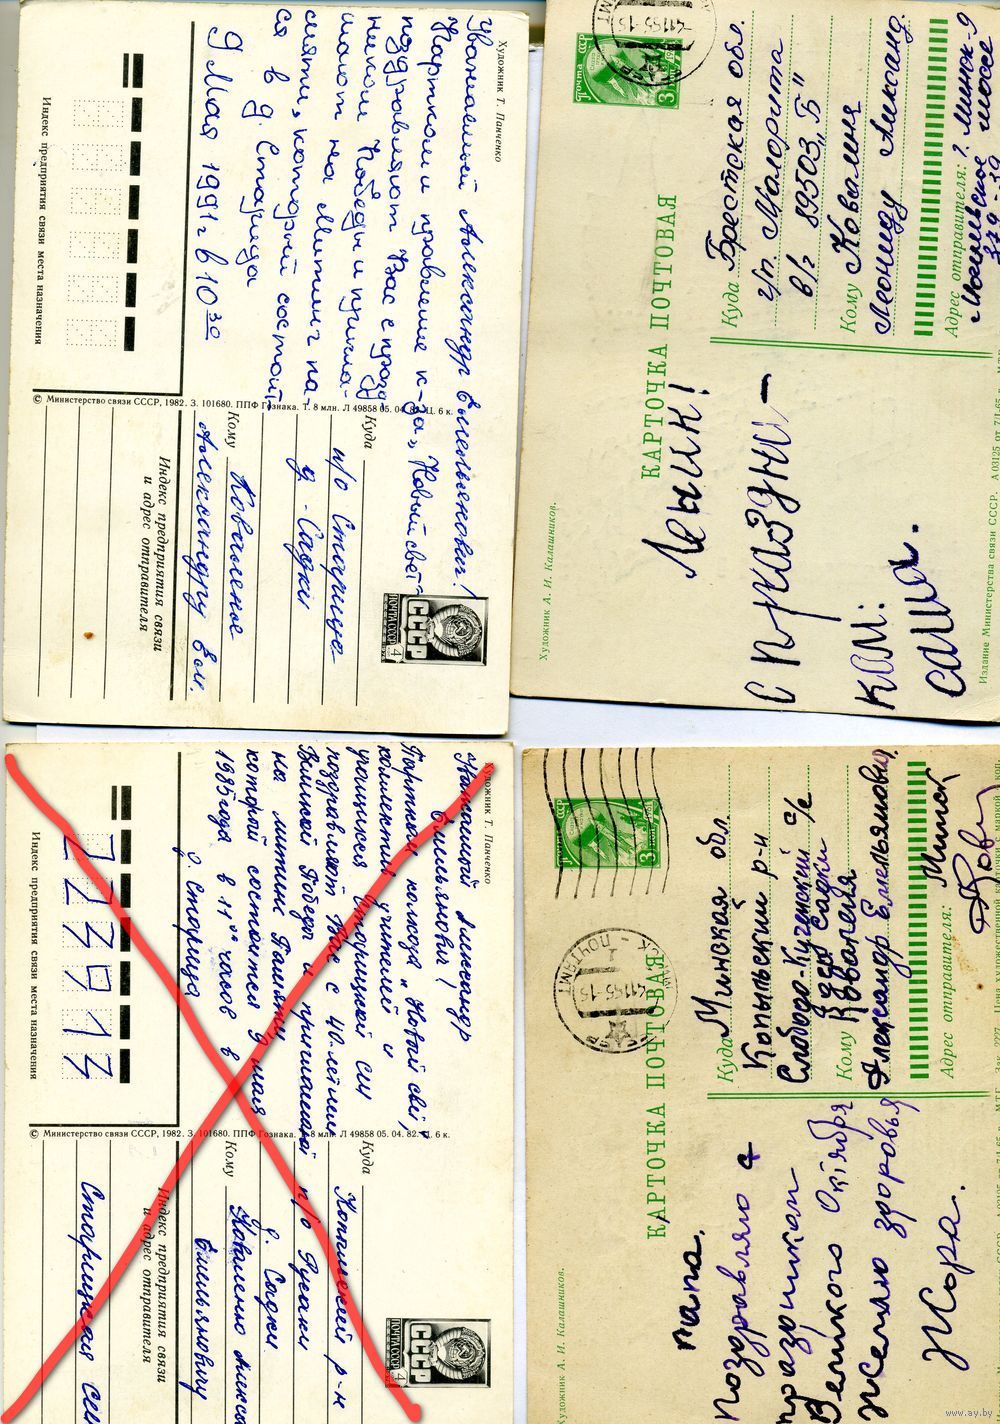 Художник Т. Панченко
Уважаемый Александр Емельянович!
Партком и правление к-за „Новый свет
поздравляют Вас с празд
ником Победы и пригла-
шают на Митинг па-
мяти, который состоит-
ся в д. Старица
9 Мая 1991 г в 10 30
Индекс предприятия связи места назначения
© Министерство связи СССР, 1982. З. 101680. ППФ Гознака. Т. 8 млн. Л 49858 05. 04. 82. Ц. 6 к.
ПОЧТА СССР
4
СССР
Куда
п/о Старица
д. Садки
Кому
Коваленко
Александру Ем.
Индекс предприятия связи
и адрес отправителя
КАРТОЧКА ПОЧТОВАЯ
Почта СССР
3
Куда Брестская обл.
г/п. Малорита
в/г 89503 „Б"
Кому Коваленя
Леониду Александ.
Адрес отправителя: г. Минск-9
Могилевское шоссе
Лёник!
С праздни-
ком.
Саша.
Художник А. И. Калашников.
Издание Министерства связи СССР. А 03125 от 7/I-65
Художник Т. Панченко
Александр
Емельянович!
Партком колхоза „Новый свет",
коллектив учителей и
учащихся Старицкой сш
поздравляют Вас с 40-летием
Великой Победы и приглашают
на митинг Памяти,
который состоится 9 мая
1985 года в 11 00 часов в
д. Старица
223913
Индекс предприятия связи места назначения
© Министерство связи СССР, 1982. З. 101680. ППФ Гознака. Т. 8 млн. Л 49858 05. 04. 82. Ц. 6 к.
ПОЧТА СССР
4
СССР
Куда
Копыльский р-н
п/о Русаки
д. Садки
Кому
Коваленко
Емельяновичу
Индекс предприятия связи
и адрес отправителя
Старицкая
КАРТОЧКА ПОЧТОВАЯ
ПОЧТАМТ
3
Куда Минская обл.
Копыльский р-н
Слободо-Кучинский с/с
д. Садки
Кому Коваленя
Александр Емельянович
Адрес отправителя: Минск
Папа.
Поздравляю с
праздником
Великого Октября
Желаю здоровья
Жора.
Художник А. И. Калашников.
www.ay.by